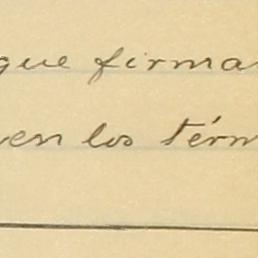 que firma
en los térm